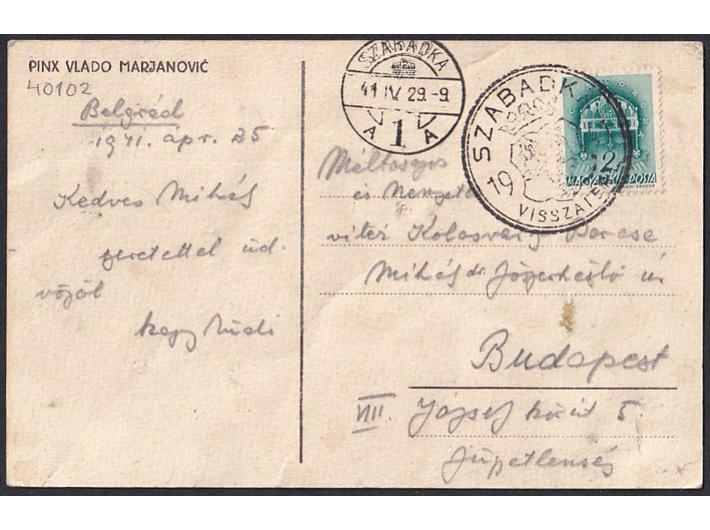 PINX VLADO MARJANOVIĆ
40102
Belgrád
1941. ápr. 25
Kedves Mihály
szeretettel üd-
vözöl
Nagy
SZABADKA
41 IV 29.-9
A 1 A
SZABADK
19
VISSZATÉ
2
MAGYAR POSTA
Méltóságos
és Nemzetes
vitéz Kolosváry Borcsa
Mihály dr
Budapest
VIII. József körút 5.